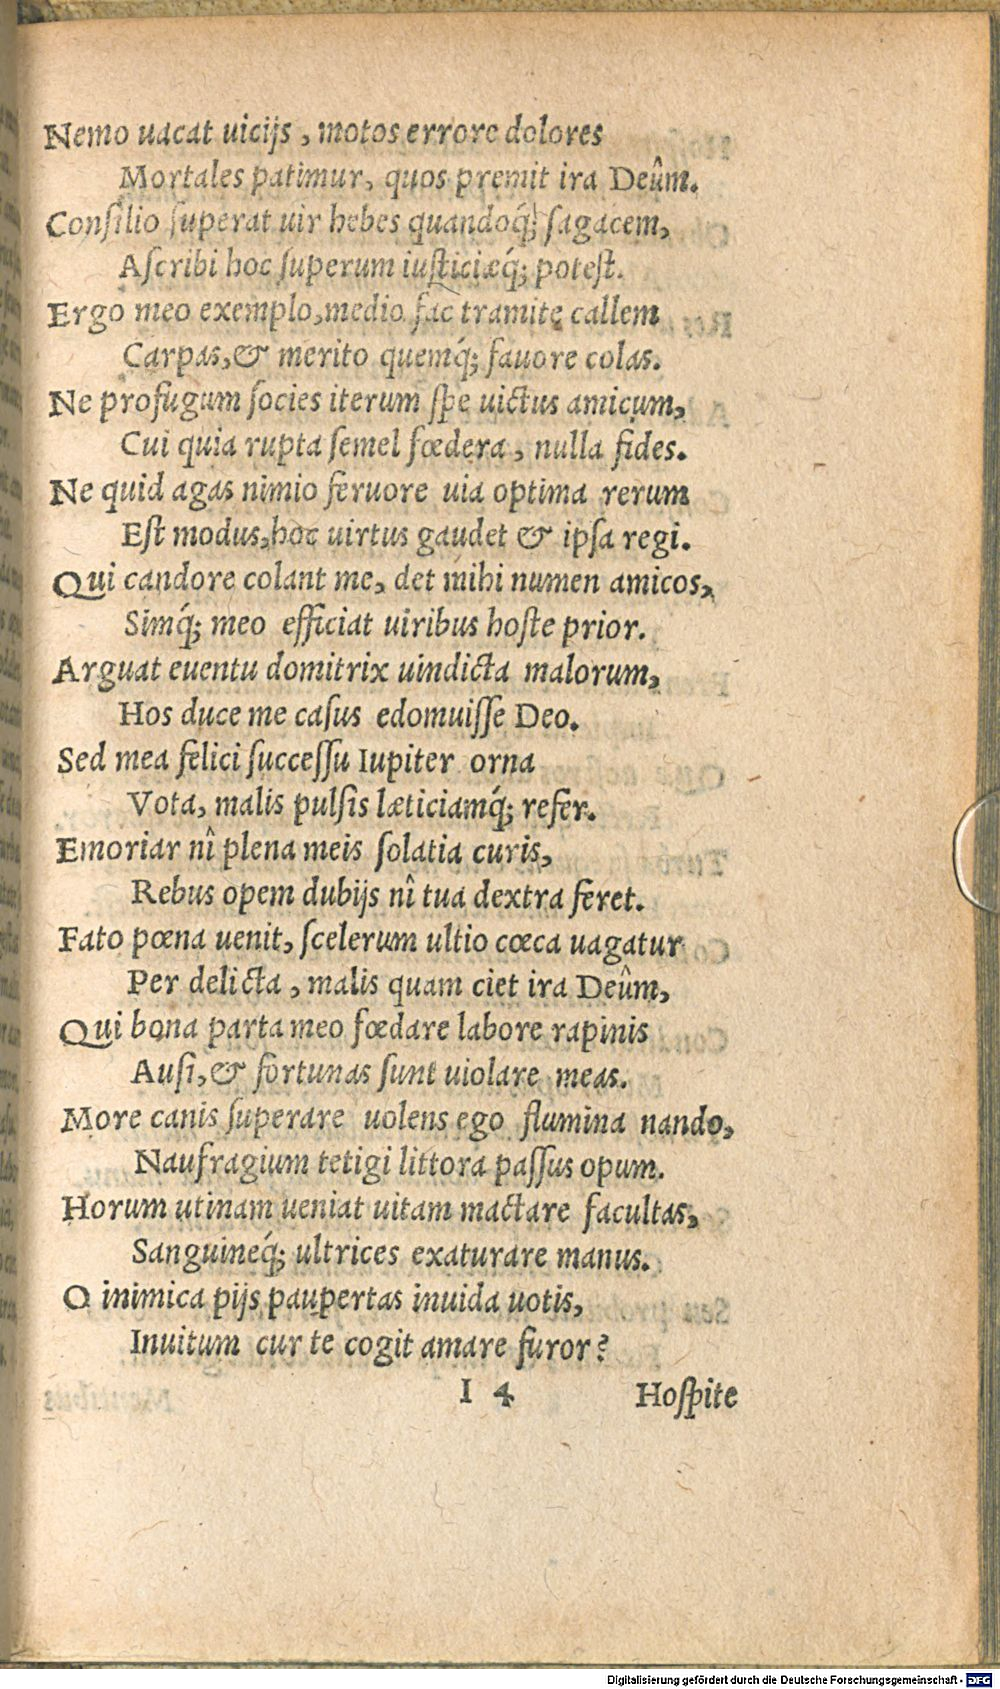 Nemo uacat uicijs, motos errore dolores
Mortales patimur, quos premit ira Deûm.
Consilio superat uir hebes quandoq́; sagacem,
Ascribi hoc superum iusticiæq́; potest.
Ergo meo exemplo, medio fac tramite callem
Carpas, & merito quemq́; fauore colas.
Ne profugum socies iterum spe uictus amicum,
Cui quia rupta semel fœdera, nulla fides.
Ne quid agas nimio feruore uia optima rerum
Est modus, hoc uirtus gaudet & ipsa regi.
Qui candore colant me, det mihi numen amicos,
Simq́; meo efficiat uiribus hoste prior.
Arguat euentu domitrix uindicta malorum,
Hos duce me casus edomuisse Deo.
Sed mea felici successu Iupiter orna
Vota, malis pulsis læticiamq́; refer.
Emoriar nî plena meis solatia curis,
Rebus opem dubijs nî tua dextra feret.
Fato pœna uenit, scelerum ultio cœca uagatur
Per delicta, malis quam ciet ira Deûm,
Qui bona parta meo fœdare labore rapinis
Ausi, & fortunas sunt uiolare meas.
More canis superare uolens ego flumina nando,
Naufragium tetigi littora passus opum.
Horum utinam ueniat uitam mactare facultas,
Sanguineq́; ultrices exaturare manus.
O inimica pijs paupertas inuida uotis,
Inuitum cur te cogit amare furor?
I 4 Hospite
Digitalisierung gefördert durch die Deutsche Forschungsgemeinschaft - DFG